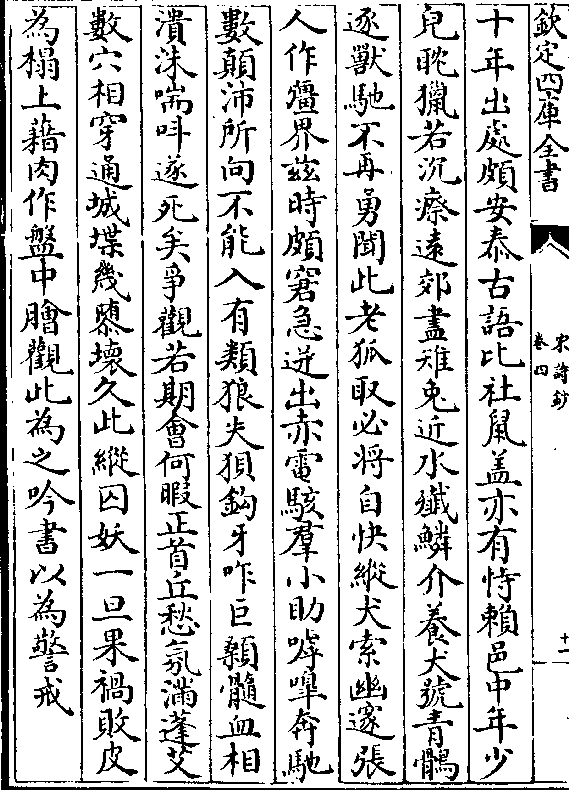 欽定四庫全書
宋詩鈔
卷四
十一
十年出處頗安泰古語比社鼠盖亦有恃賴邑中年少
兒眈獵若沉瘵遠郊盡雉兔近水殲鱗介養犬號青鶻
逐獸馳不再勇聞此老狐取必將自快縱犬索幽邃張
人作疆界兹時頗窘急迸出赤電駭羣小助呼嘷奔馳
數顛沛所向不能入有類狼失狽鈎牙咋巨顙髓血相
潰沬喘呌遂死矣爭觀若期㑹何暇正首丘愁氛滿蓬艾
數穴相穿通城堞幾隳壞久此縱囚妖一旦果禍敗皮
為榻上藉肉作盤中膾觀此為之吟書以為警戒